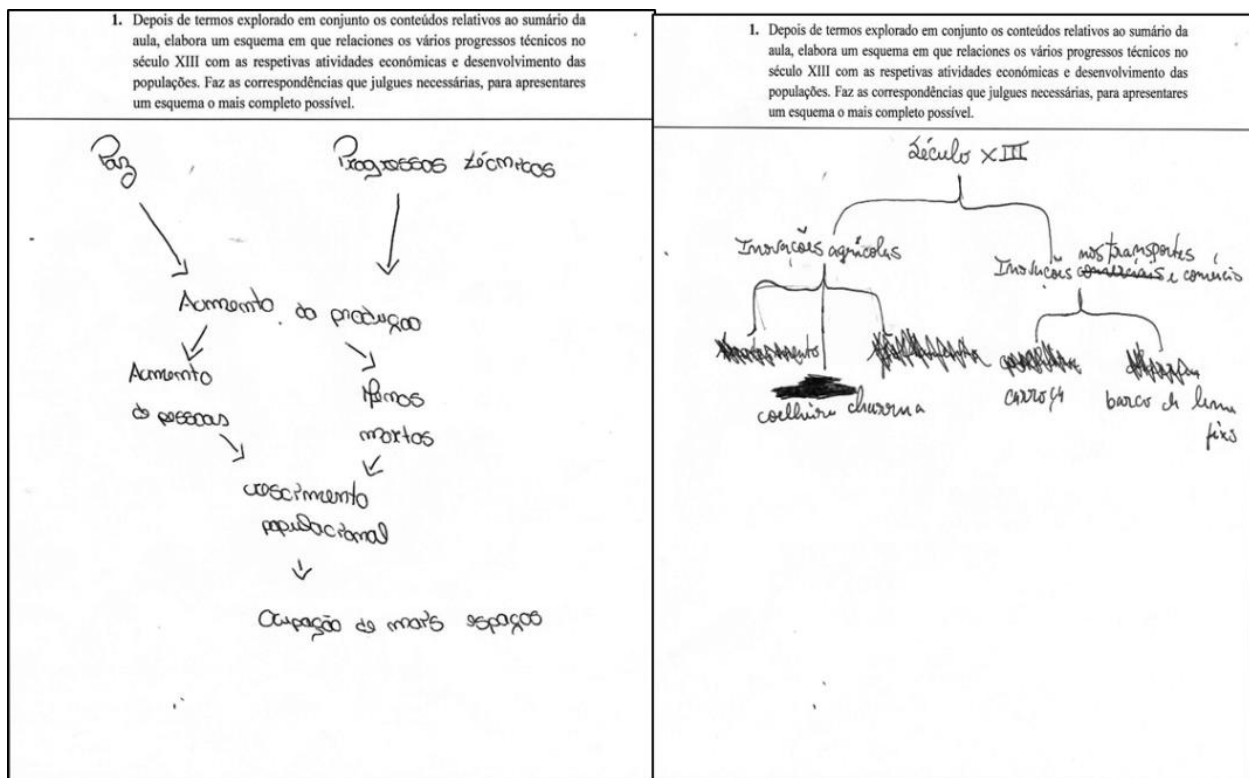 1. Depois de termos explorado em conjunto os conteúdos relativos ao sumário da
aula, elabora um esquema em que relaciones os vários progressos técnicos no
século XIII com as respetivas atividades económicas e desenvolvimento das
populações. Faz as correspondências que julgues necessárias, para apresentares
um esquema o mais completo possível.
Paz
Progressos técnicos
Aumento da produção
Aumento
de pessoas
Menos
mortos
crescimento
populacional
Ocupação de mais espaços
1. Depois de termos explorado em conjunto os conteúdos relativos ao sumário da
aula, elabora um esquema em que relaciones os vários progressos técnicos no
século XIII com as respetivas atividades económicas e desenvolvimento das
populações. Faz as correspondências que julgues necessárias, para apresentares
um esquema o mais completo possível.
Século XIII
Inovações agrícolas
nos transportes
Inovações e comércio
coelheira charrua
carroça
barco de leme
fixo